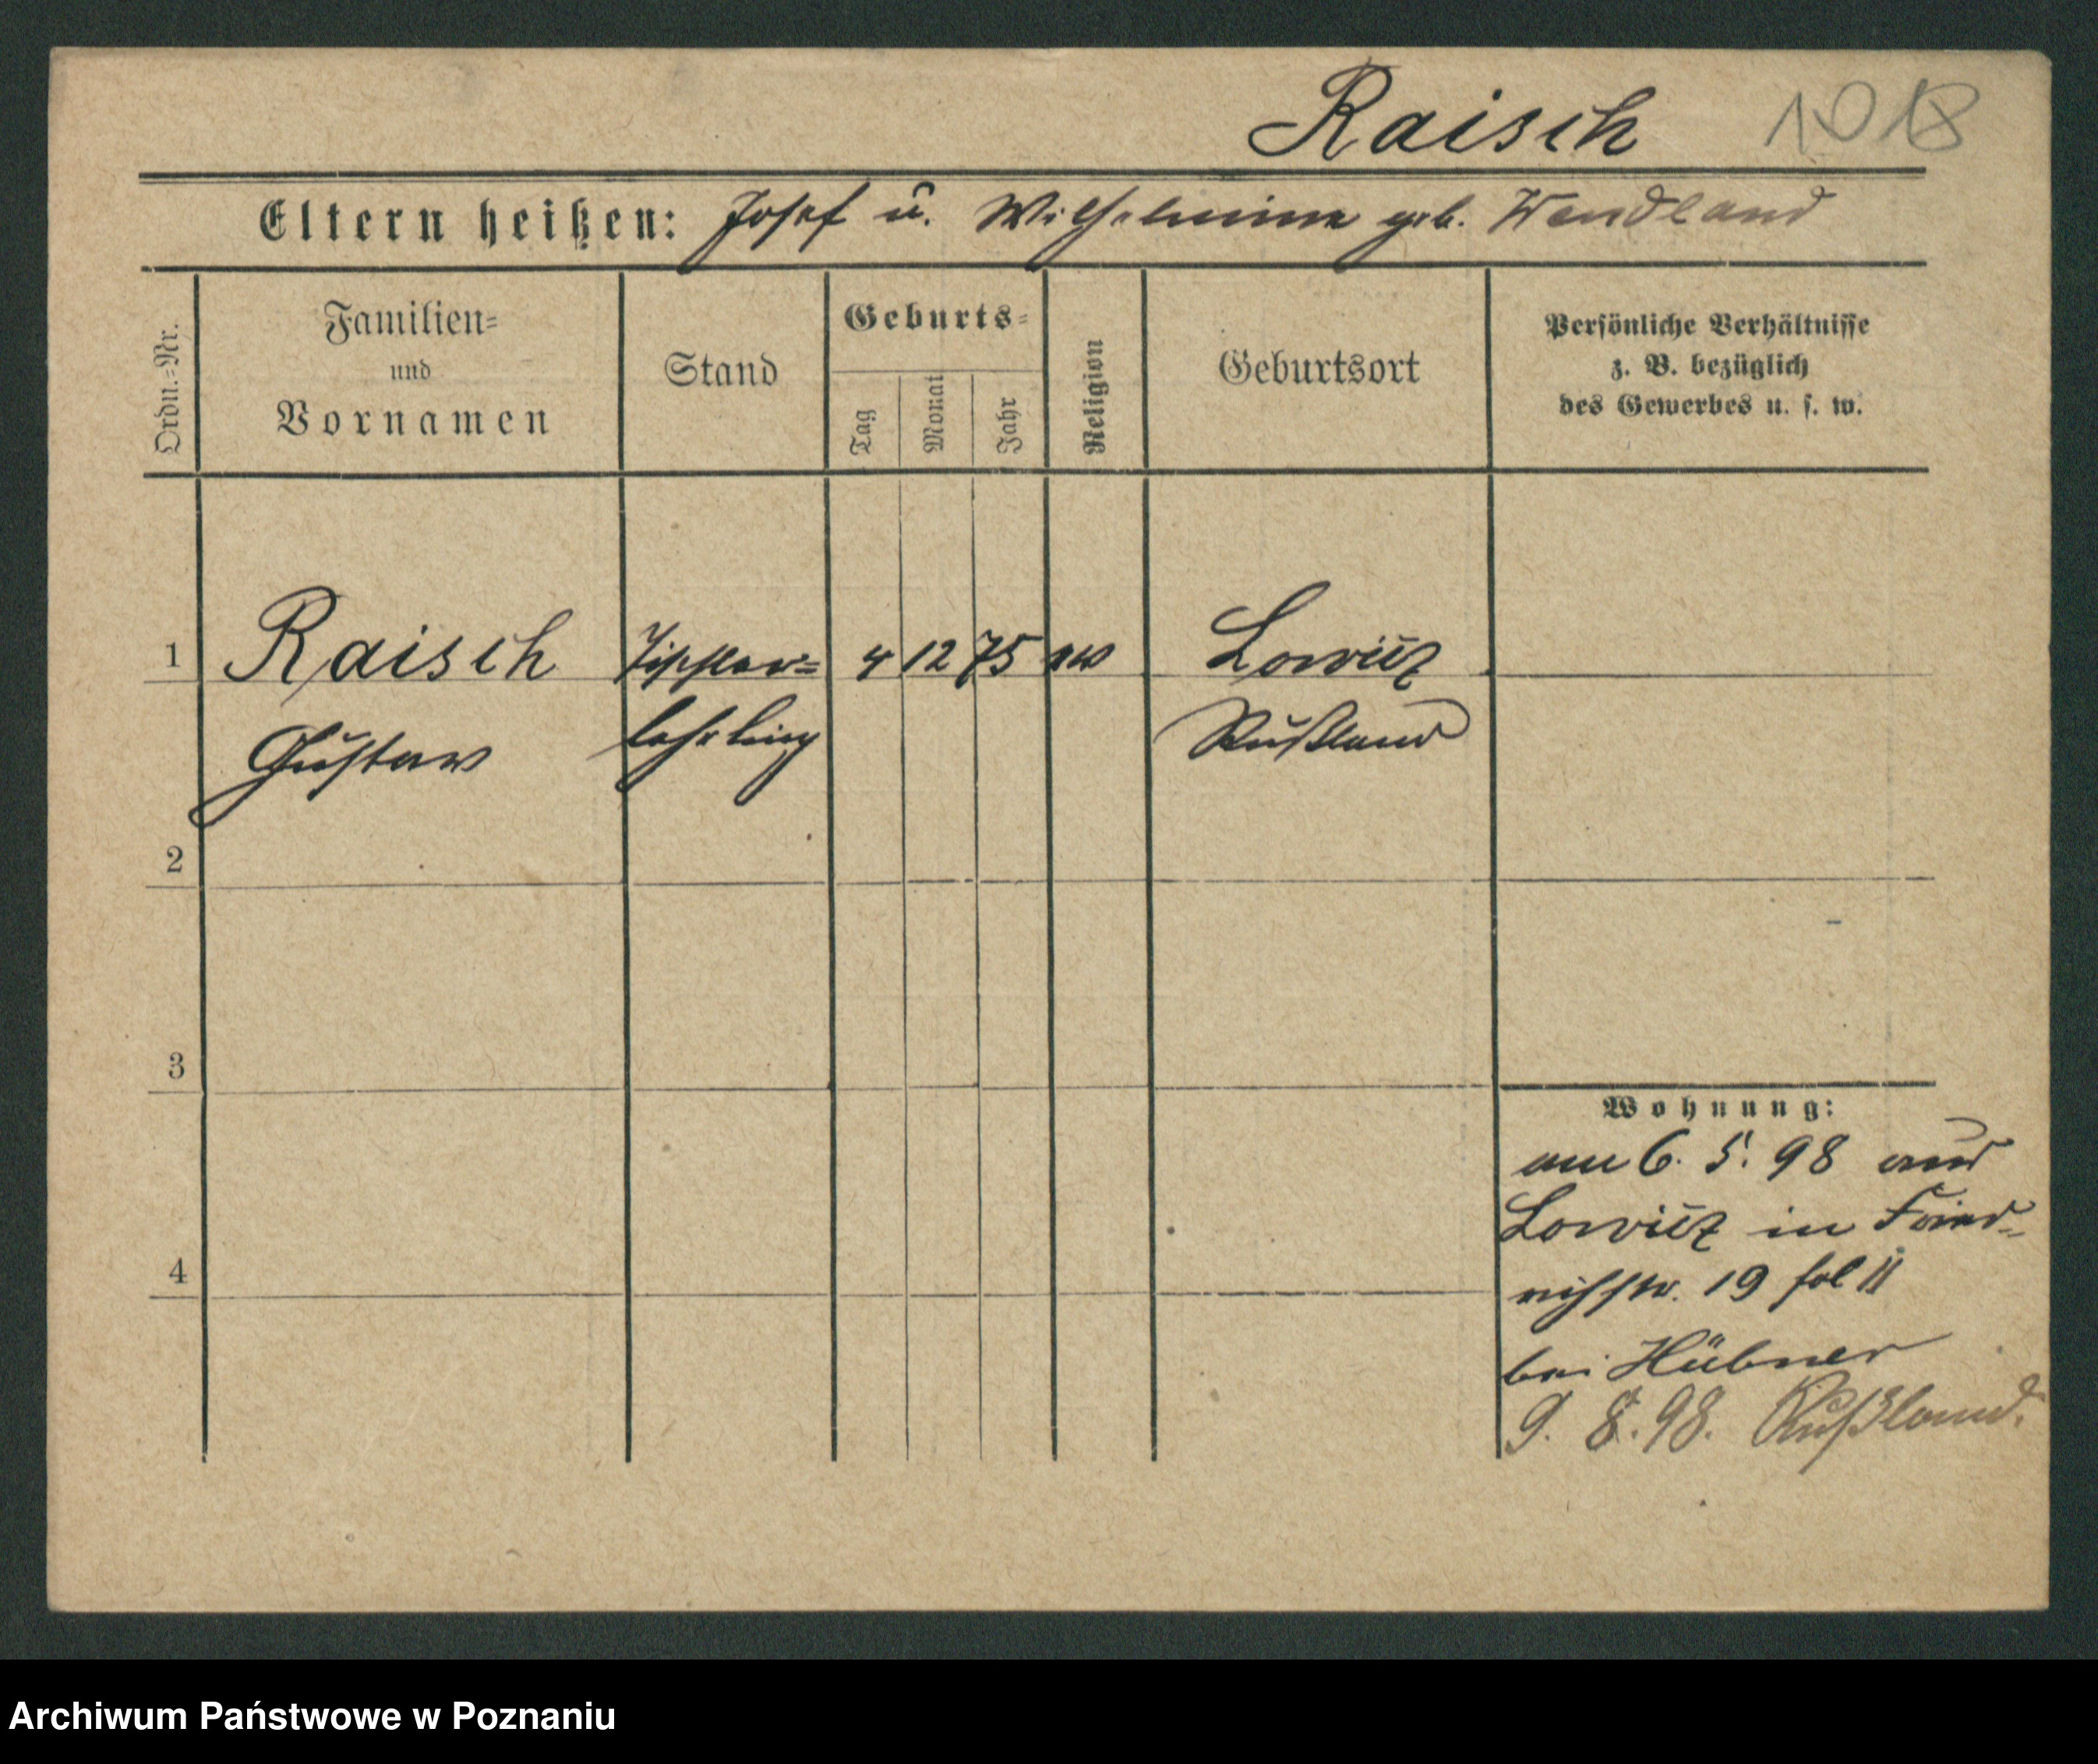 Raisch 1018
Eltern heißen: Josef u. Wilhelmine geb. Wendland
Ordn.-Nr.
Familien-
und
Vornamen
Stand
Geburts-
Tag
Monat
Jahr
Religion
Geburtsort
Persönliche Verhältnisse
z. B. bezüglich
des Gewerbes u. s. w.
1 Raisch Tischler- 4 12 75 ev Lowicz
Gustav lehrling Rußland
2
3
4
Wohnung:
am 6. 5. 98 aus
Lowicz in Fried-
richstr. 19 fol II
bei Hübner
9. 8. 98. Rußland.
Archiwum Państwowe w Poznaniu